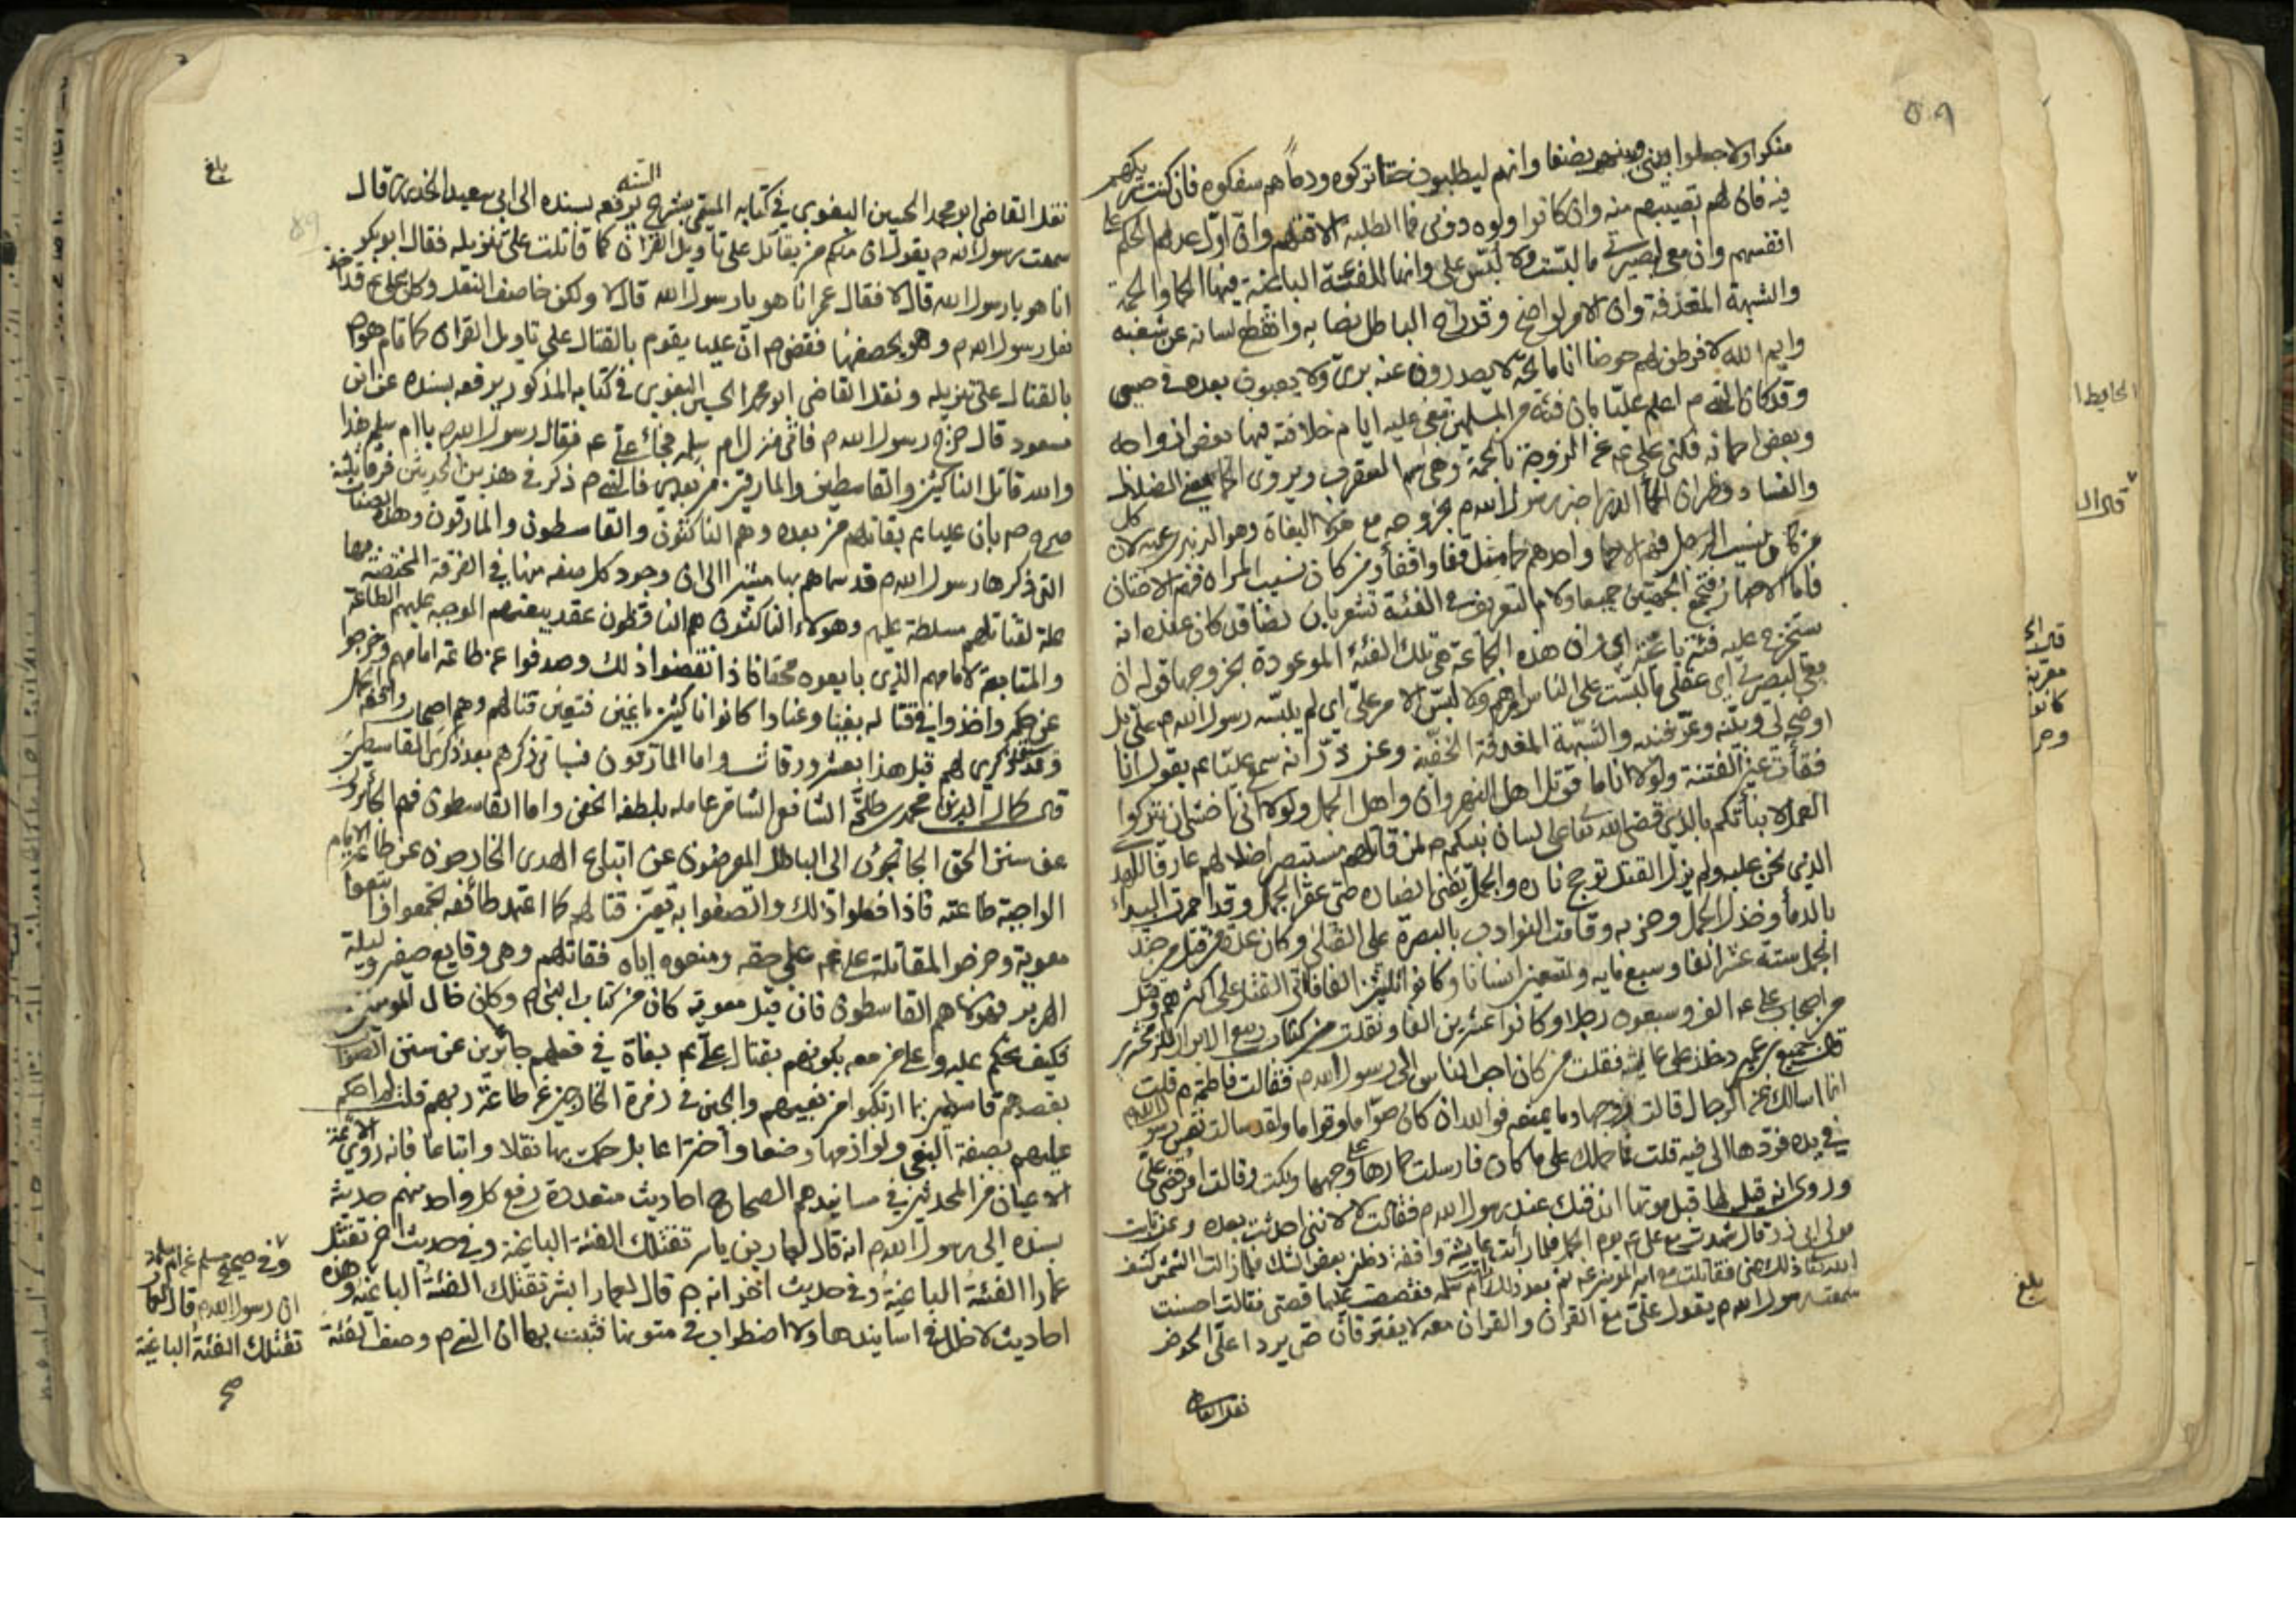 منكرا ولا جعلوا بيني وبينهم نصفا وانهم ليطلبون حقا تركوه ودماً هم سفكوه فان كنت شريكهم
فيه فان لهم نصيبهم منه وان كانوا ولوه دوني فما الطلبة الا قبلهم وان اول عدلهم للحكم على
انفسهم وان معي لبصيرتي ما لبّست ولا لُبّس علي وانها للفئة الباغية فيها الحما والحمة
والشبهة المغدفة وان الامر لواضح وقد زاح الباطل نصابه وانقطع لسانه عن شغبه
وايم الله لافرطن لهم حوضا انا ماتحه لا يصدرون عنه بريّ ولا يعبون بعده في حسي
وقد كان النبي م اعلم عليّا بان فئة من المسلمين تبغي عليه ايام خلافته فيها بعض ازواجه
وبعض احمائه فكنى علي عم عن الزوجة بالحمة وهي سم العقرب ويروى الحما يعني
والفساد وظهر ان الحمأ الذي اخبر رسول الله م بخروجه مع هؤلاء البغاة وهو الزبير ابن عمته لان
كل من كان بنسب الرجل فهم الاحما واحدهم حما مثل قفا واقفاء ومن كان بنسب المراه فهم الاختان
فاما الاصهار فتجمع الجهتين جميعا ولام التعريف في الفئة تشعر بان نصا قد كان عنده انه
ستخرج عليه فئة باغية اي وان هذه الجماعة هي تلك الفئة الموعودة بخروجها قوله ان
معي لبصيرتي اي عقلي ما لبّست على الناس امرهم ولا لُبّس الامر عليّ اي لم يلبّسه رسول الله م عليّ بل
اوضحه لي وبيّنه وعرّفنيه والشبهة المغدفة الخفيّة وعن ذرّ انه سمع عليّا عم يقول انا
فقأت عين الفتنة ولولا انا ما قوتل اهل النهروان واهل الجمل ولولا انني اخشى ان تتركوا
العمل لانبأتكم بالذي قضى الله تعالى على لسان نبيكم م لمن قاتلهم مستبصراً ضلالهم عارفا للهدى
الذي نحن عليه ولم يزل القتل توجج ناره والجمل تفنى انصاره حتى عقر الجمل وقد احمرت البيداء
بالدماء وخذل الجمل وحزبه وقامت النوادب بالبصرة على القتلى وكان عدة من قتل من جند
الجمل ستة عشر الفا وسبع مايه وتسعين انسانا وكانوا ثلثين الفا فاتى القتل على اكثرهم وقتل
من اصحاب علي عم الف وسبعون رجلا وكانوا عشرين الفا ونقلت من كتاب ربيع الابرار للزمخشري
قال جميع بن عمير دخلت على عايشة فقلت من كان احب الناس الى رسول الله م فقالت فاطمة م قلت
انما اسالك عن الرجال قالت زوجها وما يمنعه فوالله ان كان صوّاما وقواما ولقد سالت نفس رسول الله م
في يده فردّها الى فيه قلت فما حملك على ما كان فارسلت خمارها على وجهها وبكت وقالت امر قضي عليّ
وروي انه قيل لها قبل موتها اندفنك عند رسول الله م فقالت لا لانني احدثت بعده وعن ثابت
مولى ابي ذر قال شهدت مع علي عم يوم الجمل فلما رأيت عايشة واقفة دخلني بعض الشك فلما زالت الشمس كشف
الله تعالى ذلك عني فقاتلت مع امير المؤمنين عم ثم بعد ذلك اتيت ام سلمه فقصصت عليها قصتي فقالت احسنت
سمعت رسول الله م يقول علي مع القران والقران معه لا يفترقان حتى يردا عليّ الحوض
نقل القاضي
بلغ
نقل القاضي ابو محمد الحسين البغوي في كتابه المسمى بشرح السنه يرفعه بسنده الى ابي سعيد الخدري قال
سمعت رسول الله م يقول ان منكم من يقاتل على تأويل القران كما قاتلت على تنزيله فقال ابو بكر
انا هو يا رسول الله قال لا فقال عمر انا هو يا رسول الله قال لا ولكن خاصف النعل وكان علي عم قد اخذ
نعل رسول الله م وهو يخصفها فقضى م ان عليا يقوم بالقتال على تاويل القران كما قام هو م
بالقتال على تنزيله ونقل القاضي ابو محمد الحسين البغوي في كتابه المذكور يرفعه بسنده عن ابن
مسعود قال خرج رسول الله م فاتى منزل ام سلمه فجاء علي عم فقال رسول الله م يا ام سلمه هذا
والله قاتل الناكثين والقاسطين والمارقين من بعدي فالنبي م ذكر في هذين الحديثين فرقا ثلثة
صرح م بان عليا عم يقاتلهم من بعده وهم الناكثون والقاسطون والمارقون وهذه الصفات
التي ذكرها رسول الله م قد سماهم بها مشيرا الى ان وجود كل صفه منها في الفرقة المختصة بها
علة لقتالهم مسلطة عليهم وهؤلاء الناكثون هم الناقضون عقد بيعتهم الموجبة عليهم الطاعة
والمتابعة لامامهم الذي بايعوه محقا فاذا نقضوا ذلك وصدفوا عن طاعة امامهم وخرجوا
عن حكمه واخذوا في قتاله بغيا وعنادا كانوا ناكثين باغين فتعين قتالهم وهم اصحاب الجمل
وقد تقدم ذكري لهم قبل هذا بعشر ورقات واما المارقون فسياتي ذكرهم بعد ذكر القاسطين
قال كمال الدين محمد بن طلحة الشافعي الشافي عامله بلطفه الخفي واما القاسطون فهم الجائرون
عن سنن الحق الجانحون الى الباطل المعرضون عن اتباع الهدى الخارجون عن طاعة الامام
الواجبة طاعته فاذا فعلوا ذلك واتصفوا به تعين قتالهم كما اعتمد طائفه تجمعوا واتبعوا
معوية وخرجوا لمقاتلة علي عم على حقه ومنعوه اياه فقاتلهم وهي وقايع صفين وليلة
الهرير فهؤلاء هم القاسطون فان قيل معوية كان من كتاب النبي م وكان خال المومنين
فكيف يحكم عليه وعلى من معه بكونهم بقتال علي عم بغاة في فعلهم جائرين عن سنن الصواب
بقصدهم قاسطين بما ارتكبوا من بغيهم والجين في زمرة الخارجين عن طاعة ربهم قلت لم احكم
عليهم بصفة البغي ولوازمها وضعا واختراعا بل حكمت بها نقلا واتباعا فانه روى الائمة
الاعيان من المحدثين في مسانيدهم الصحاح احاديث متعددة رفع كل واحد منهم حديثه
بسنده الى رسول الله م انه قال لعمار بن ياسر تقتلك الفئة الباغية وفي حديث اخر تقتل
عمارا الفئة الباغية وفي حديث اخر انه م قال لعمار ابشر تقتلك الفئة الباغية وهذه
احاديث لا خلل في اسانيدها ولا اضطراب في متونها فثبت بها ان النبي م وصف الفئة
وفي صحيح مسلم عن ام سلمه
ان رسول الله م قال لعمار
تقتلك الفئة الباغية
صح
بلغ